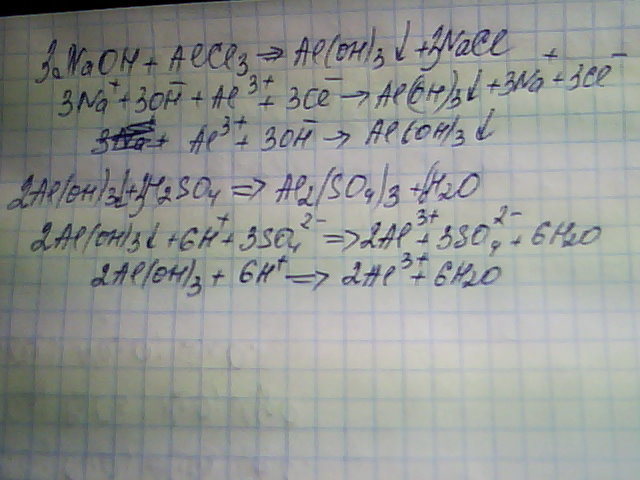 3NaOH + AlCl₃ ⇒ Al(OH)₃↓ + 3NaCl
3Na⁺ + 3OH⁻ + Al³⁺ + 3Cl⁻ → Al(OH)₃↓ + 3Na⁺ + 3Cl⁻
Al³⁺ + 3OH⁻ → Al(OH)₃↓
2Al(OH)₃↓ + 3H₂SO₄ ⇒ Al₂(SO₄)₃ + 6H₂O
2Al(OH)₃↓ + 6H⁺ + 3SO₄²⁻ ⇒ 2Al³⁺ + 3SO₄²⁻ + 6H₂O
2Al(OH)₃ + 6H⁺ ⇒ 2Al³⁺ + 6H₂O